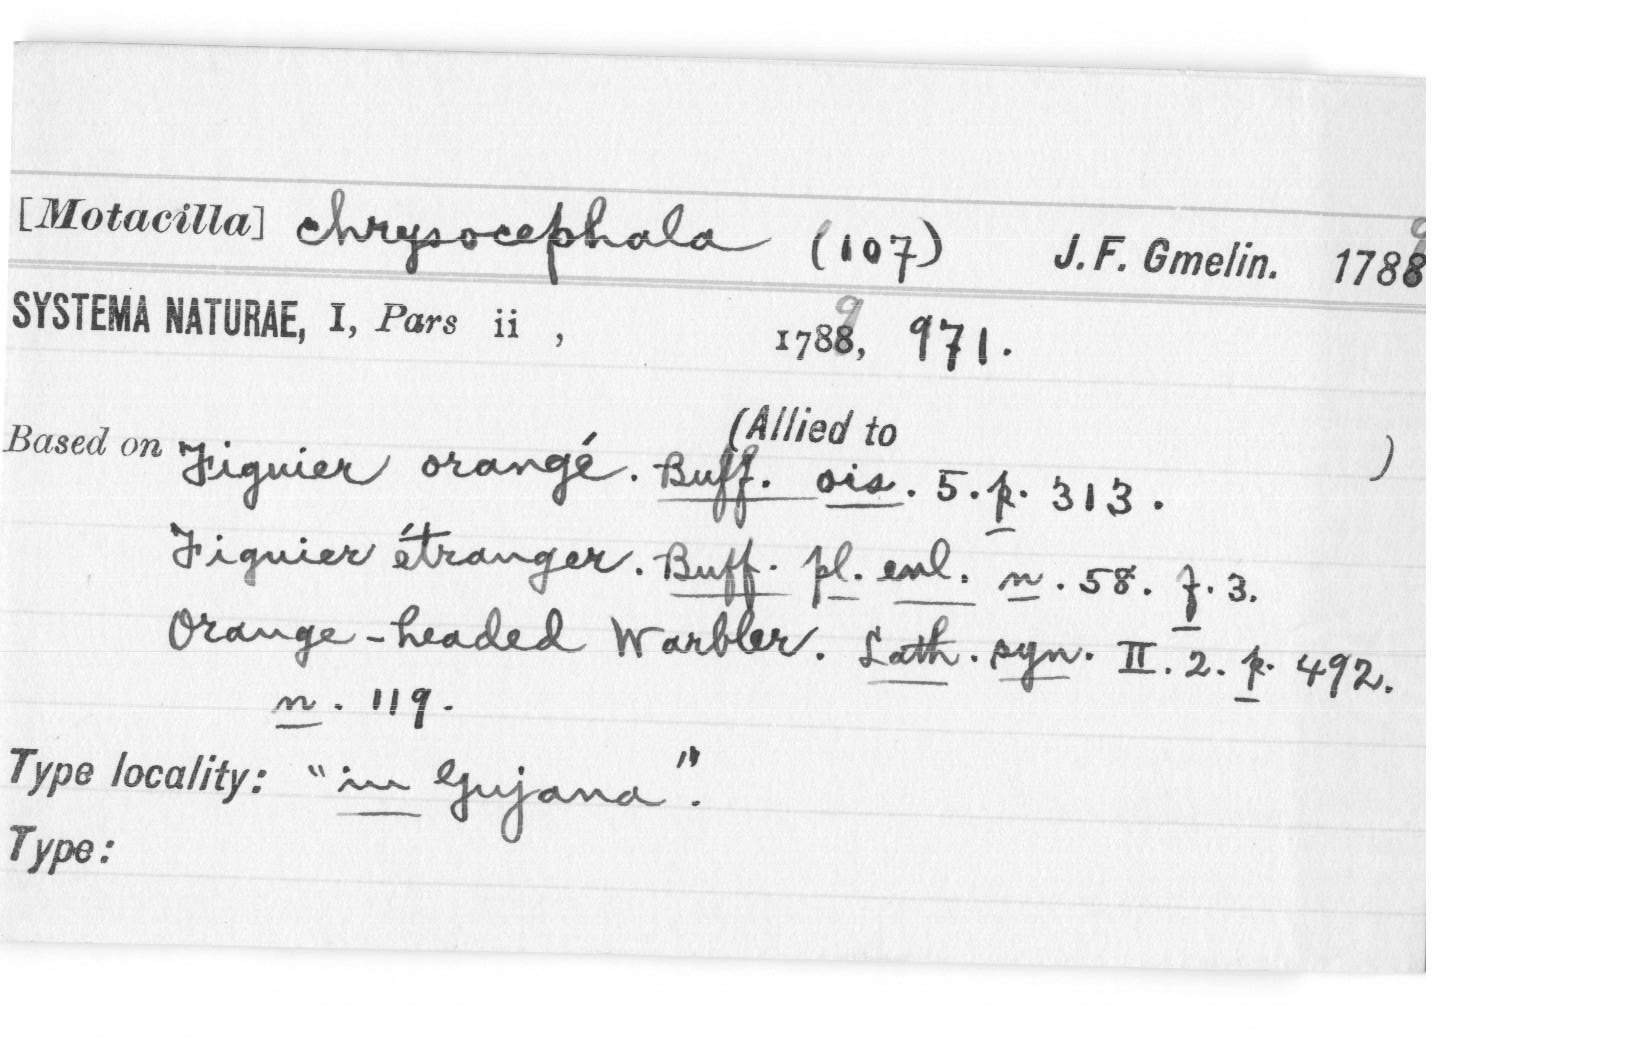 [Motacilla] chrysocephala (107) J. F. Gmelin. 1789
SYSTEMA NATURAE, I, Pars ii , 1789, 971.
(Allied to )
Based on Figuier orangé. Buff. ois. 5. p. 313.
Figuier étranger. Buff. pl. enl. n. 58. f. 3.
Orange-headed Warbler. Lath. syn. II. 2. p. 492.
n. 119.
Type locality: "in Gujana".
Type: